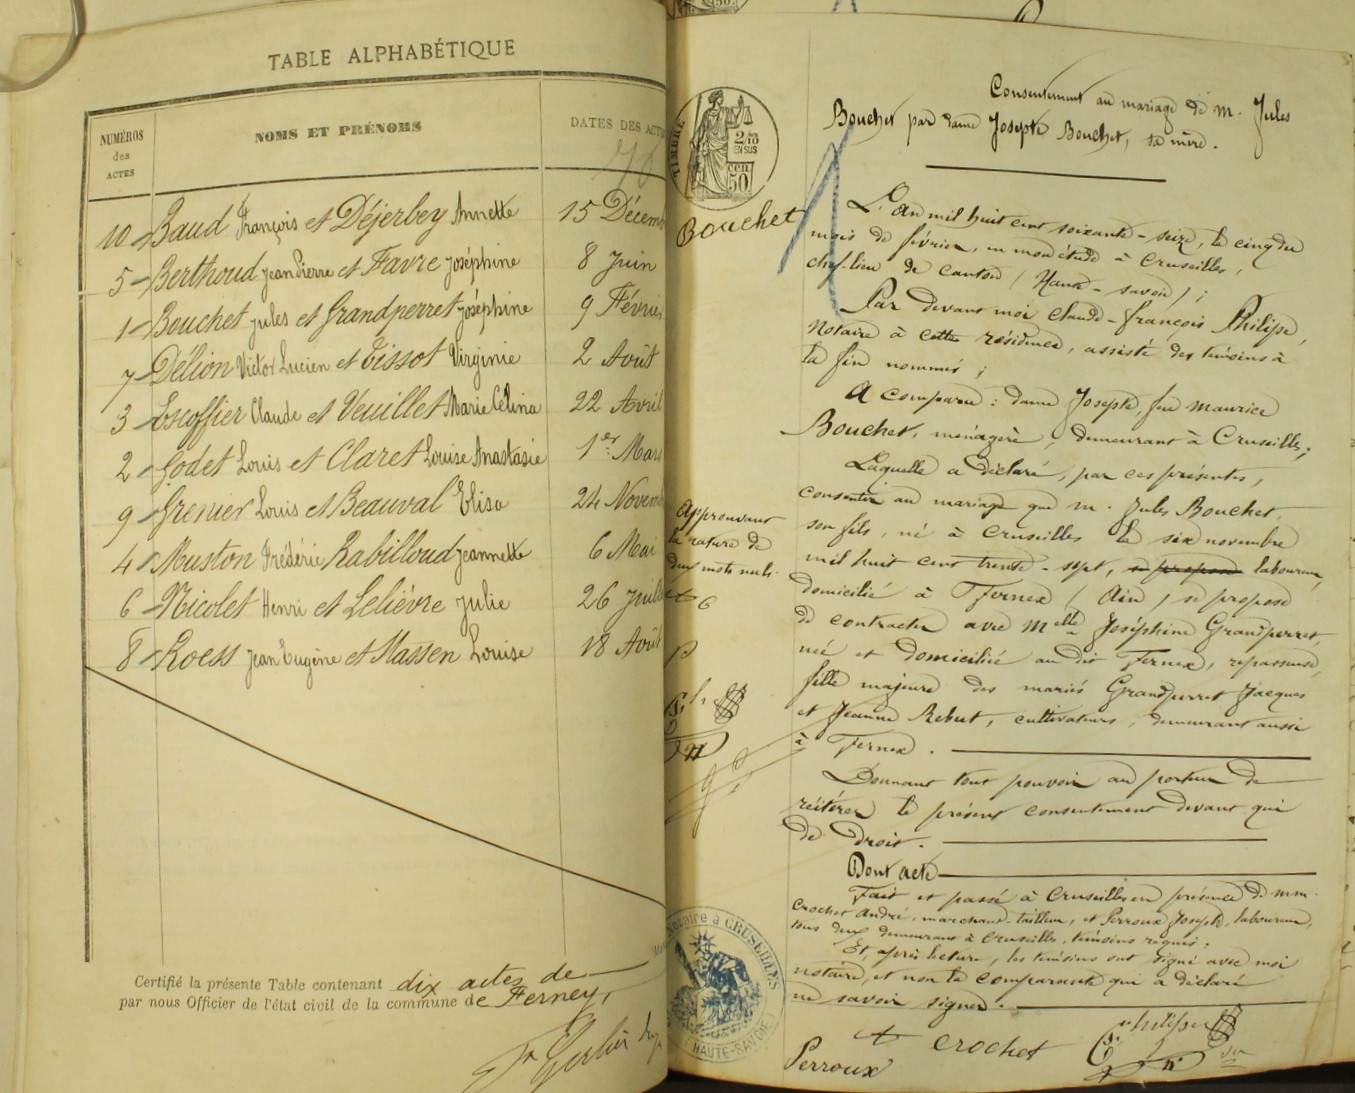 TABLE ALPHABÉTIQUE
NUMÉROS des ACTES
NOMS ET PRÉNOMS
DATES DES ACT
76
10 Baud François et Déjerbey Annette 15 Décem
5 Berthoud Jean Pierre et Favre Joséphine 8 Juin
1 Bouchet Jules et Grandperret Joséphine 9 Février
7 Délion Victor Lucien et Tissot Virginie 2 Août
3 Escoffier Claude et Veuillet Marie Célina 22 Avril
2 Godet Louis et Claret Louise Anastasie 1er Mars
9 Grenier Louis et Beauval Elisa 24 Novem
4 Muston Frédéric Rabilloud Jeannette 6 Mai
6 Nicolet Henri et Lelièvre Julie 26 Juill
8 Roess Jean Eugène et Massen Louise 18 Août
Certifié la présente Table contenant dix actes de
par nous Officier de l'état civil de la commune de Ferney,
TIMBRE
2/10
EN SUS
50
cen
Bouchet
Consentement au mariage de M. Jules
Bouchet par dame Josepte Bouchet, sa mère.
L'an mil huit cent soixante-seize, le cinq du
mois de février, en mon étude à Cruseilles,
chef-lieu de canton (Haute-Savoie);
Par devant moi Claude-François Philipe,
Notaire à cette résidence, assisté des témoins à
la fin nommés;
A comparu: dame Josepte, feu Maurice
Bouchet, ménagère, demeurant à Cruseilles;
Laquelle a déclaré, par ces présentes,
consentir au mariage que M. Jules Bouchet,
son fils, né à Cruseilles le six novembre
mil huit cent trente-sept, se propose laboureur,
domicilié à Fernex (Ain) se propose
de contracter avec Melle Joséphine Grandperret,
née et domiciliée au dit Fernex, repasseuse,
fille majeure des mariés Grandperret Jacques
et Jeanne Rebut, cultivateurs, demeurant aussi
à Fernex.
Approuvant
la rature de
deux mots nuls.
Donnant tout pouvoir au porteur de
réitérer le présent consentement devant qui
de droit.
Dont acte
Fait et passé à Cruseilles en présence de MM.
Crochet André, marchand tailleur, et Perroux Joseph, laboureur,
tous deux demeurant à Cruseilles, témoins requis.
Et, après lecture, les témoins ont signé avec moi
notaire, et non la comparante qui a déclaré
ne savoir signer.
Notaire à CRUSEILLES
(HAUTE-SAVOIE)
Crochet
Philippe
Perroux